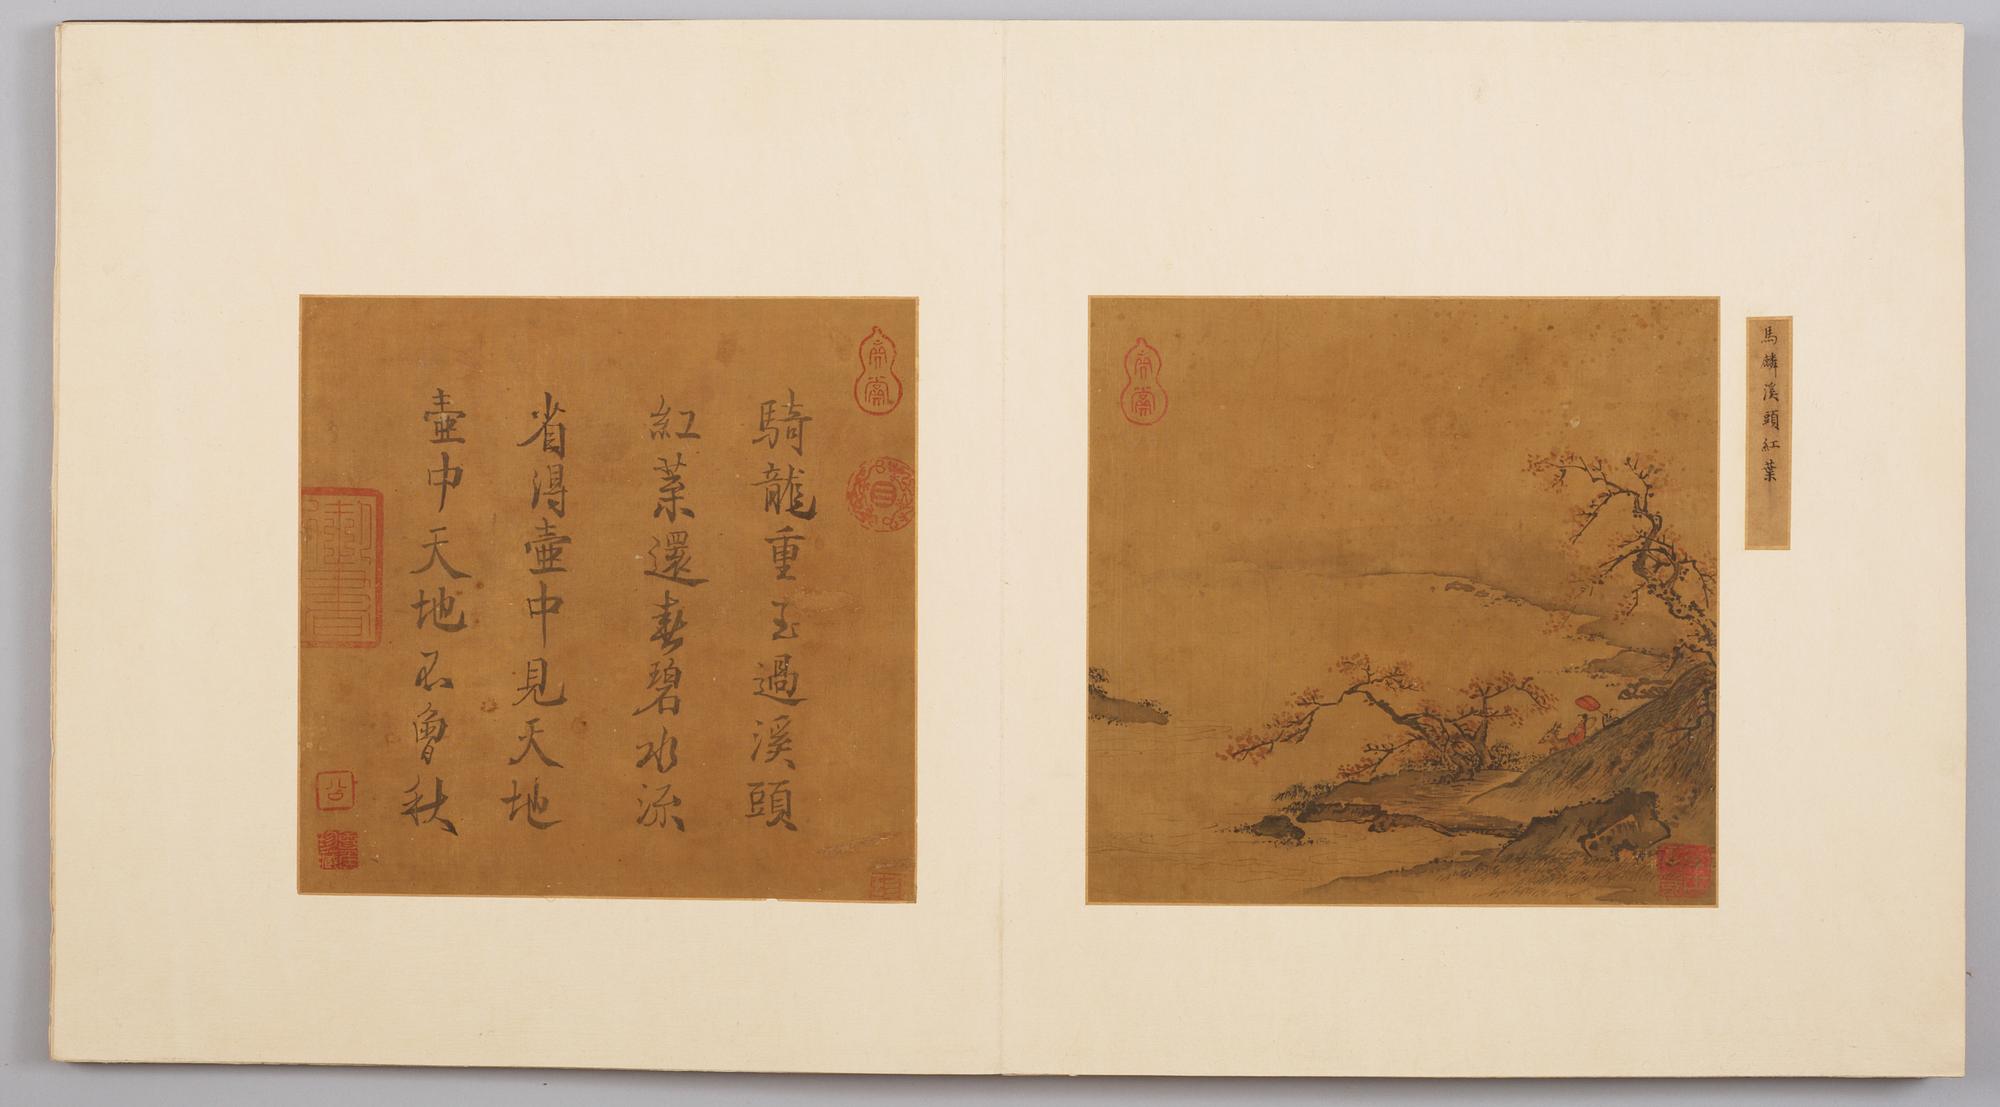 馬麟溪頭紅葉
騎龍重玉過溪頭
紅葉還春碧水流
省得壺中見天地
壺中天地不曾秋